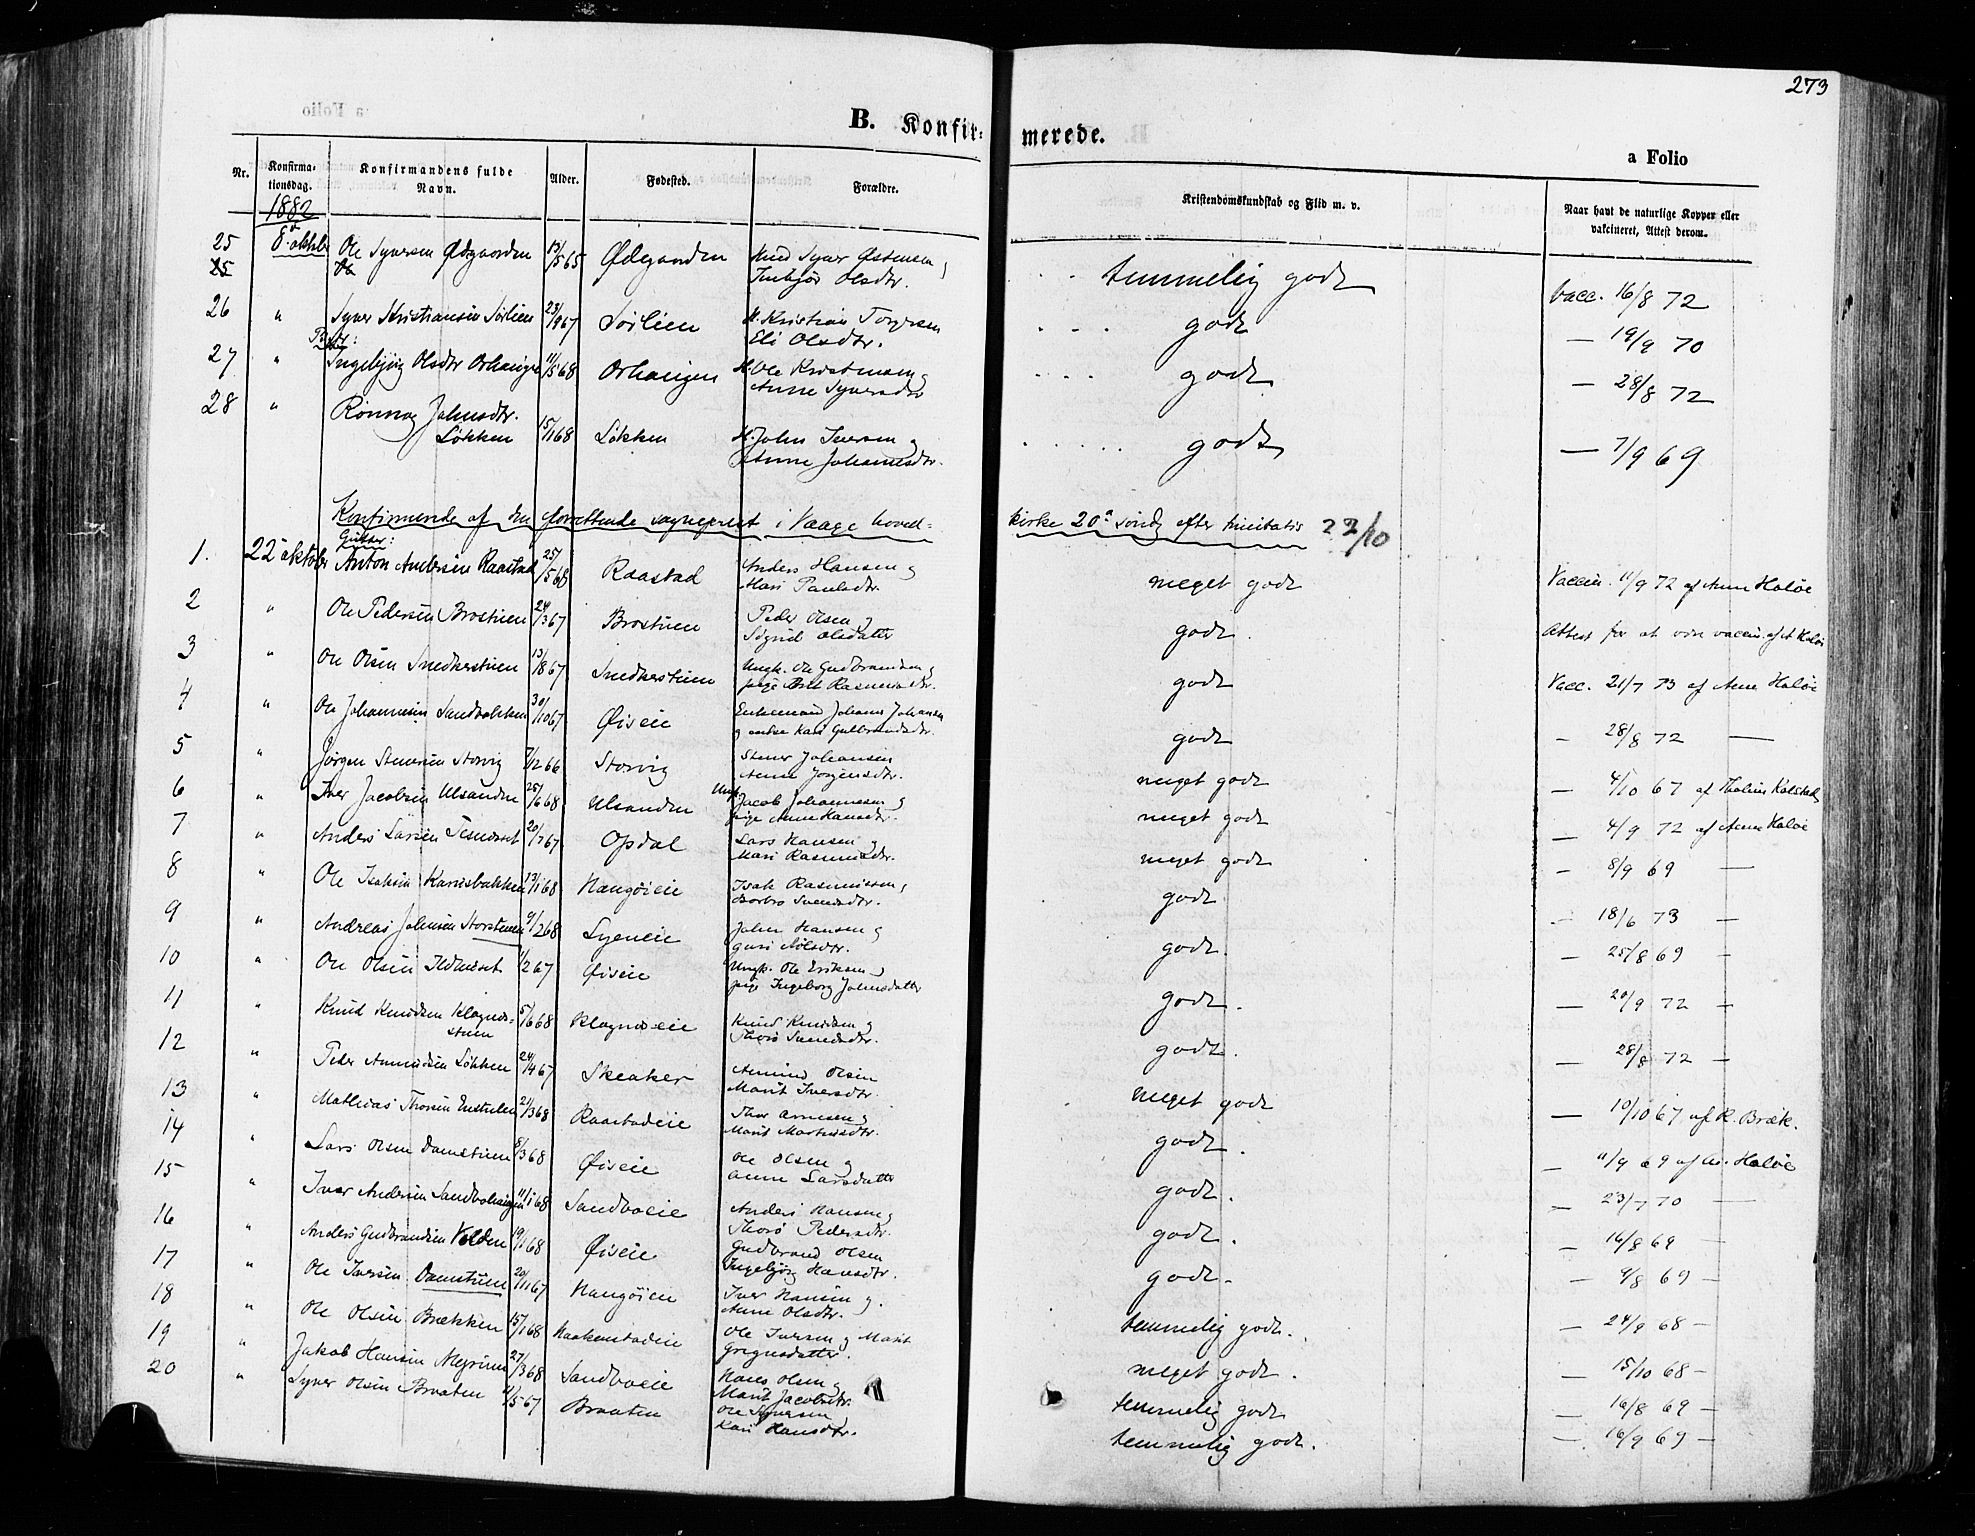 273
B. Konfirmerede.
a Folio
Nr.
Konfirmationsdag.
Konfirmandens fulde Navn.
Alder.
Fødested.
Forældre.
Kristendomskundskab og Flid m. v.
Naar havt de naturlige Kopper eller vakcineret, Attest derom.
1882
25 8 oktbr Ole Syversen Ødegaarden 13/5 65 Ødegaarden Syver Østensen Olsdtr. temmelig godt Vacc. 16/8 72
26 " Syver Kristiansen Sørlien 23/9 67 Sørlien Kristian Eli Olsdtr. godt — 19/9 70
27 " Ingebjørg Olsdtr 11/5 68 Ole Kristensen Anne Syversdtr godt — 28/8 72
28 " Rønnog Johnsdtr. Løkken 15/1 68 Løkken John Iversen og Anne Johannesdtr. godt — 7/9 69
Konfirmerede af den forrettende sogneprest i Vaage hoved-kirke 20de sønd. efter trinitatis 22/10
Gutter:
1. 22 oktober Anton Andersen Raastad 25/5 68 Raastad Anders Hansen og Mari Paulsdtr. meget godt Vaccin. 11/9 72 af Anne Haløe
2 " Ole Pedersen Brostuen 24/3 67 Brostuen Peder Olsen og Sigrid Olsdatter godt. Attest for at være vaccin. af A Haløe
3 " Ole Olsen Snedkerstuen 13/8 67 Snedkerstuen Ungk. Ole Gudbrandsen og pige Brit Rasmusdtr. godt Vacc. 21/7 73 af Anne Haløe
4 " Ole Johannesen Sandbakken 30/10 67 Øiseie Enkemand Johans Johansen og enke Kari Gulbrandsdtr. godt — 28/8 72 —
5 " Jørgen Stenersen Storvig 7/12 66 Storvig Stener Johansen Anne Jørgensdtr. meget godt — 4/10 67 af
6 " Iver Jacobsen Ulsanden 25/6 68 Ulsanden Ungk. Jacob Johannesen og pige Anne Hansdtr. meget godt — 4/9 72 af Anne Haløe
7 " Anders Larsen 20/7 67 Opdal Lars Hansen og Mari Rasmusdtr. meget godt — 8/9 69 —
8 " Ole Isaksen 13/1 68 Isak Rasmussen og Barbro Svendsdtr. godt — 18/6 73 —
9 " Andreas Johnsen Storstuen 9/2 68 John Hansen og Guri godt. — 25/8 69 —
10 " Ole Olsen 1/2 67 Øiseie Ungk. Ole Eriksen og pige Ingeborg Johnsdatter godt. — 20/9 72 —
11 " Knud Knudsen 5/6 68 Knud Knudsen og Thorø Svendsdtr. godt. — 28/8 72 —
12 " Peder Amundsen Løkken 24/4 67 Skeaker Amund Olsen Marit Iversdtr. meget godt — 10/10 67 af R. Bræk.
13 " Mathias Thorsen 21/3 68 Raastadeie Thor Arnesen og Marit godt. — 11/9 69 af An. Haløe
14 " Lars Olsen Damstuen 8/3 68 Øiseie Ole Olsen og Anne Larsdatter godt. — 23/7 70 —
15 " Iver Andersen 11/1 68 Sandboeie Anders Hansen og Thorø Pedersdtr. godt. — 16/8 69 —
16 " Anders Gudbrandsen Volden 19/1 68 Øiseie Gudbrand Olsen Ingebjørg Hansdtr. godt. — 9/8 69 —
17 " Ole Iversen Damstuen 20/11 67 Iver Hansen og Anne Olsdtr. temmelig godt. — 24/9 68 —
18 " Ole Olsen Brækken 15/1 68 Haakenstadeie Ole Iversen og Marit meget godt. — 15/10 68 —
19 " Jakob Hansen 27/3 68 Sandboeie Hans Olsen og Marit Jacobsdtr. temmelig godt — 16/8 69 —
20 " Syver Olsen Braaten 4/5 67 Braaten Ole Syversen Kari Hansdtr. temmelig godt. — 16/9 69 —